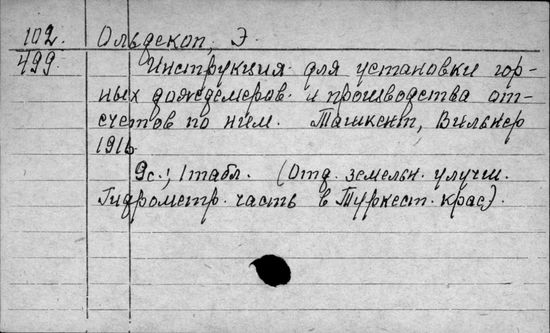 102. Ольдекоп, Э.
499. Инструкция для установки гор-
ных дождемеров и производства от-
счетов по ним. Ташкент, Вильнер
1916.
9с.; 1 табл. (Отд. земельн. улучш.
Гидрометр. часть в Туркест. крае).